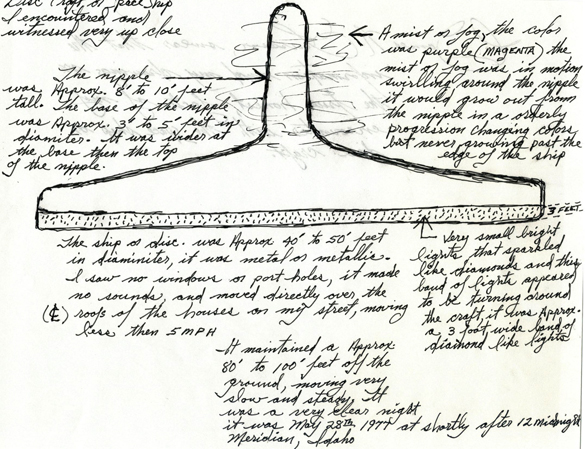 Disc craft or space ship
I encountered and
witnessed very up close
A mist or fog, the color
was purple (MAGENTA) the
mist or fog was in motion
swirlling around the nipple
it would grow out from
the nipple in a orderly
progression changing colors
but never growing past the
edge of the ship
The nipple
was Approx. 8' to 10' feet
tall. The base of the nipple
was Approx. 3' to 5' feet in
diamiter. It was wider at
the base then the top
of the nipple.
3 FEET.
The ship or disc. was Approx 40' to 50' feet
in diaminiter, it was metal or metallic.
I saw no windows or port holes, it made
no sounds, and moved directly over the
roofs of the houses on my street, moving
less then 5 MPH
Very small bright
lights that sparkled
like diamonds and this
band of lights appeared
to be turning around
the craft, it was Approx.
a 3 foot wide band of
diamond like lights
It maintained a Approx
80' to 100' feet off the
ground, moving very
slow and steady. It
was a very clear night
it was May 28th 1977 at shortly after 12 midnight
Meridian, Idaho